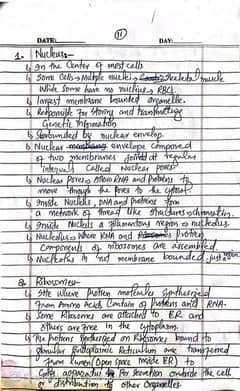 11
DATE: DAY:
1. Nucleus:-
In the Center of most cells
Some Cells → Multiple nuclei → Skeletal muscle
While Some have no nucleus → RBCs.
largest membrane bounded organelle.
Responsible for Storing and transmitting
Genetic Information
Surrounded by nuclear envelop
Nuclear envelope composed
of two membranes joined at regular
interval Called Nuclear pores.
Nuclear Pores → Allow RNA and Proteins to
move through the Pores to the cytosol
Inside Nucleus, DNA and proteins form
a network of thread like structures → chromatin.
Inside Nucleus a filamentous region → nucleolus.
Nucleolus → Where RNA and Protein
Components of ribosomes are assembled.
Nucleolus is not membrane bounded, just a region
2. Ribosomes:-
Site where Protein molecules Synthesized
From Amino Acids. Contain of Proteins and RNA.
Some Ribosomes are attached to ER and
others are free in the Cytoplasm.
Proteins Synthesized on Ribosomes bound to
Endoplasmic Reticulum are transferred
from Lumen (Open space inside ER) to
Golgi apparatus for Secretion outside the
distribution to other Organelles.